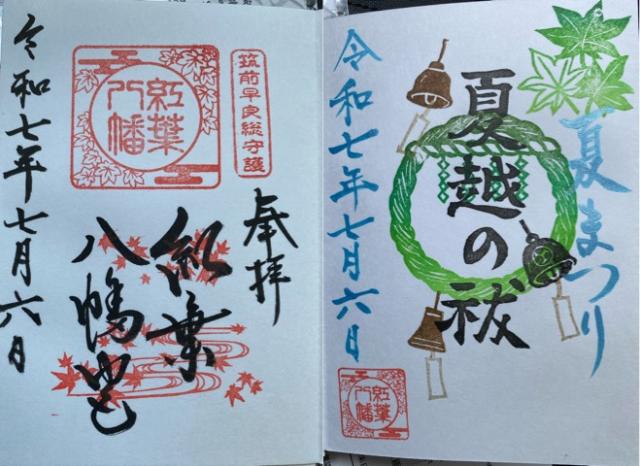 夏まつり
夏越の祓
令和七年七月六日
紅葉
八幡
奉拝
筑前早良総守護
紅葉
八幡
紅葉
八幡宮
令和七年七月六日